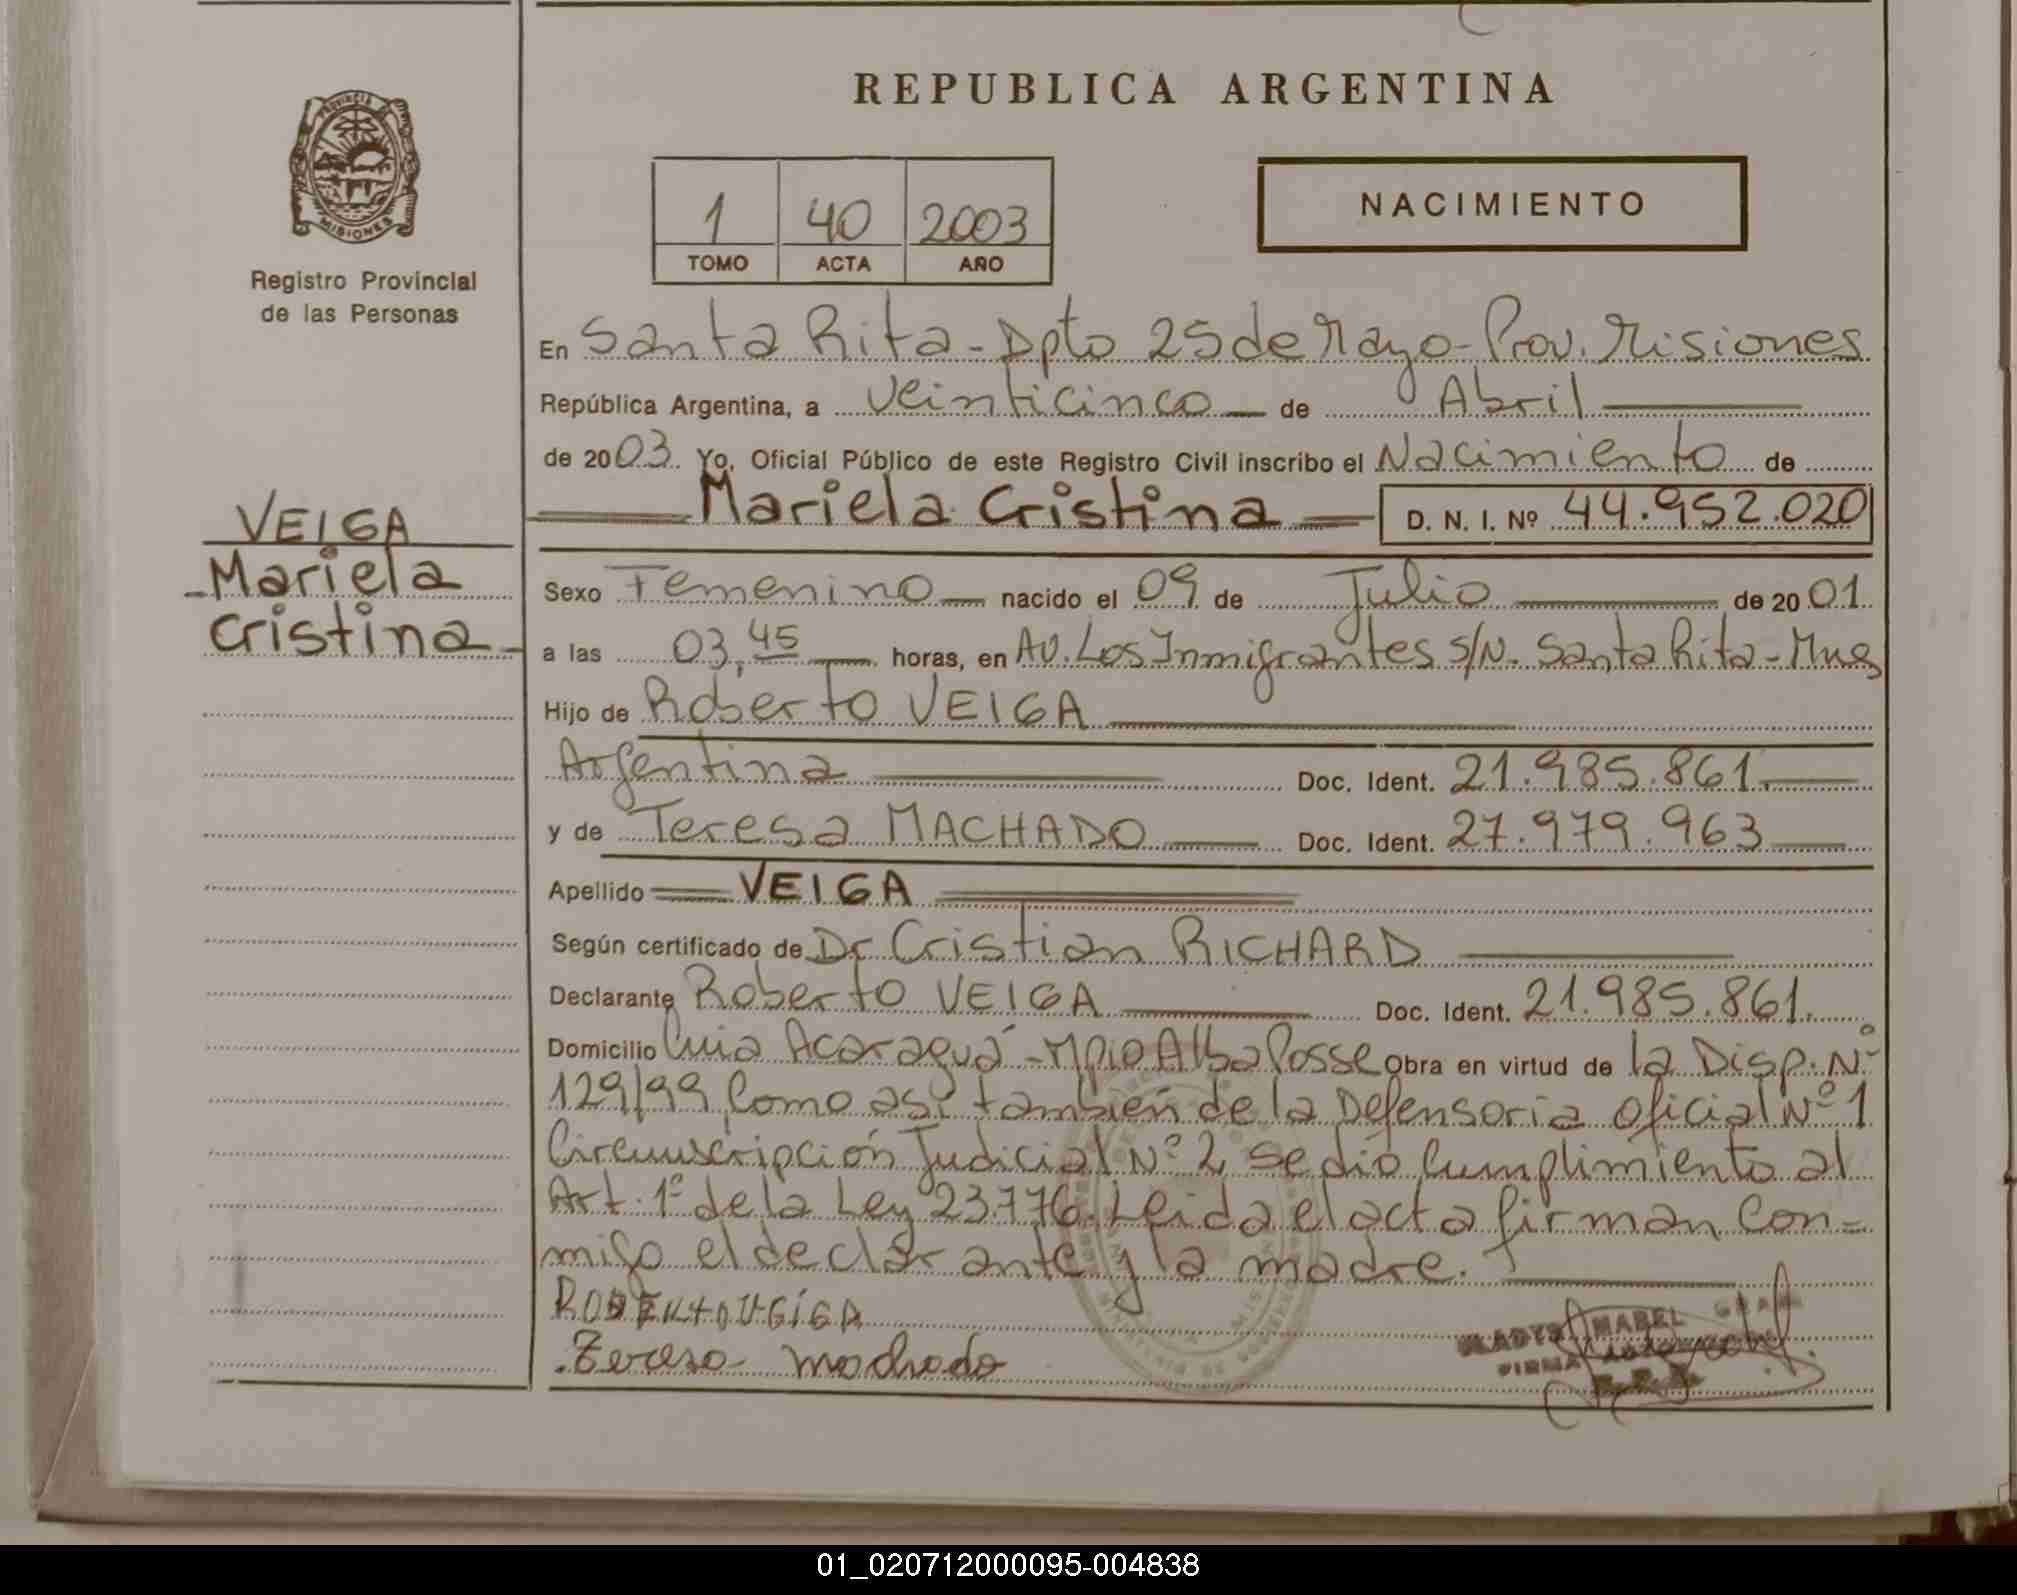 PROVINCIA DE
MISIONES
Registro Provincial
de las Personas
VEIGA
Mariela
Cristina
REPUBLICA ARGENTINA
1 40 2003
TOMO ACTA AÑO
NACIMIENTO
En Santa Rita - Dpto 25 de Mayo - Prov. Misiones
República Argentina, a veinticinco de Abril
de 2003. Yo, Oficial Público de este Registro Civil inscribo el Nacimiento de
Mariela Cristina D. N. I. Nº 44.952.020
Sexo Femenino nacido el 09 de Julio de 2001.
a las 03,45 horas, en Av. Los Inmigrantes s/N. Santa Rita - Mnes
Hijo de Roberto VEIGA
Argentina Doc. Ident. 21.985.861.
y de Teresa MACHADO Doc. Ident. 27.979.963
Apellido VEIGA
Según certificado de Dr Cristian RICHARD
Declarante Roberto VEIGA Doc. Ident. 21.985.861.
Domicilio Cnia Acaraguá - Mpio Alba Posse Obra en virtud de la Disp. Nº
129/99 Como así también de la Defensoria Oficial Nº 1
Circunscripción Judicial Nº 2, se dió Cumplimiento al
Art. 1º de la Ley 23.776. Leida el acta firman con-
migo el declarante y la madre.
ROBERTO VEIGA
Teresa machado
GLADYS MABEL
FIRMA
01_020712000095-004838